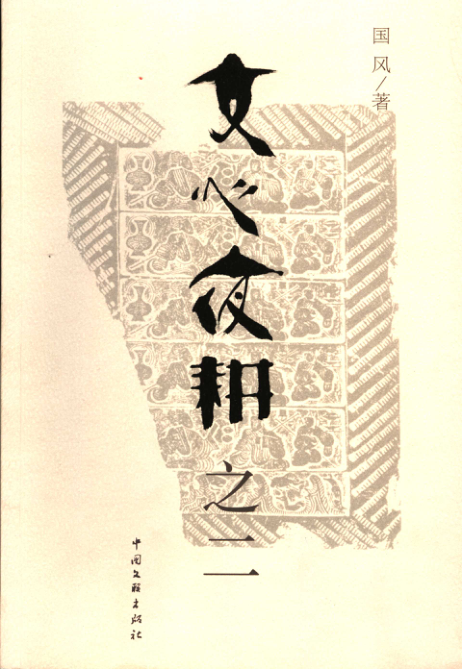 国风/著
文心夜耕
之二
中国文联出版社